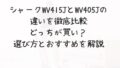 シャークWV415JとWV405Jの
違いを徹底比較
どっちが買い？
選び方とおすすめを解説